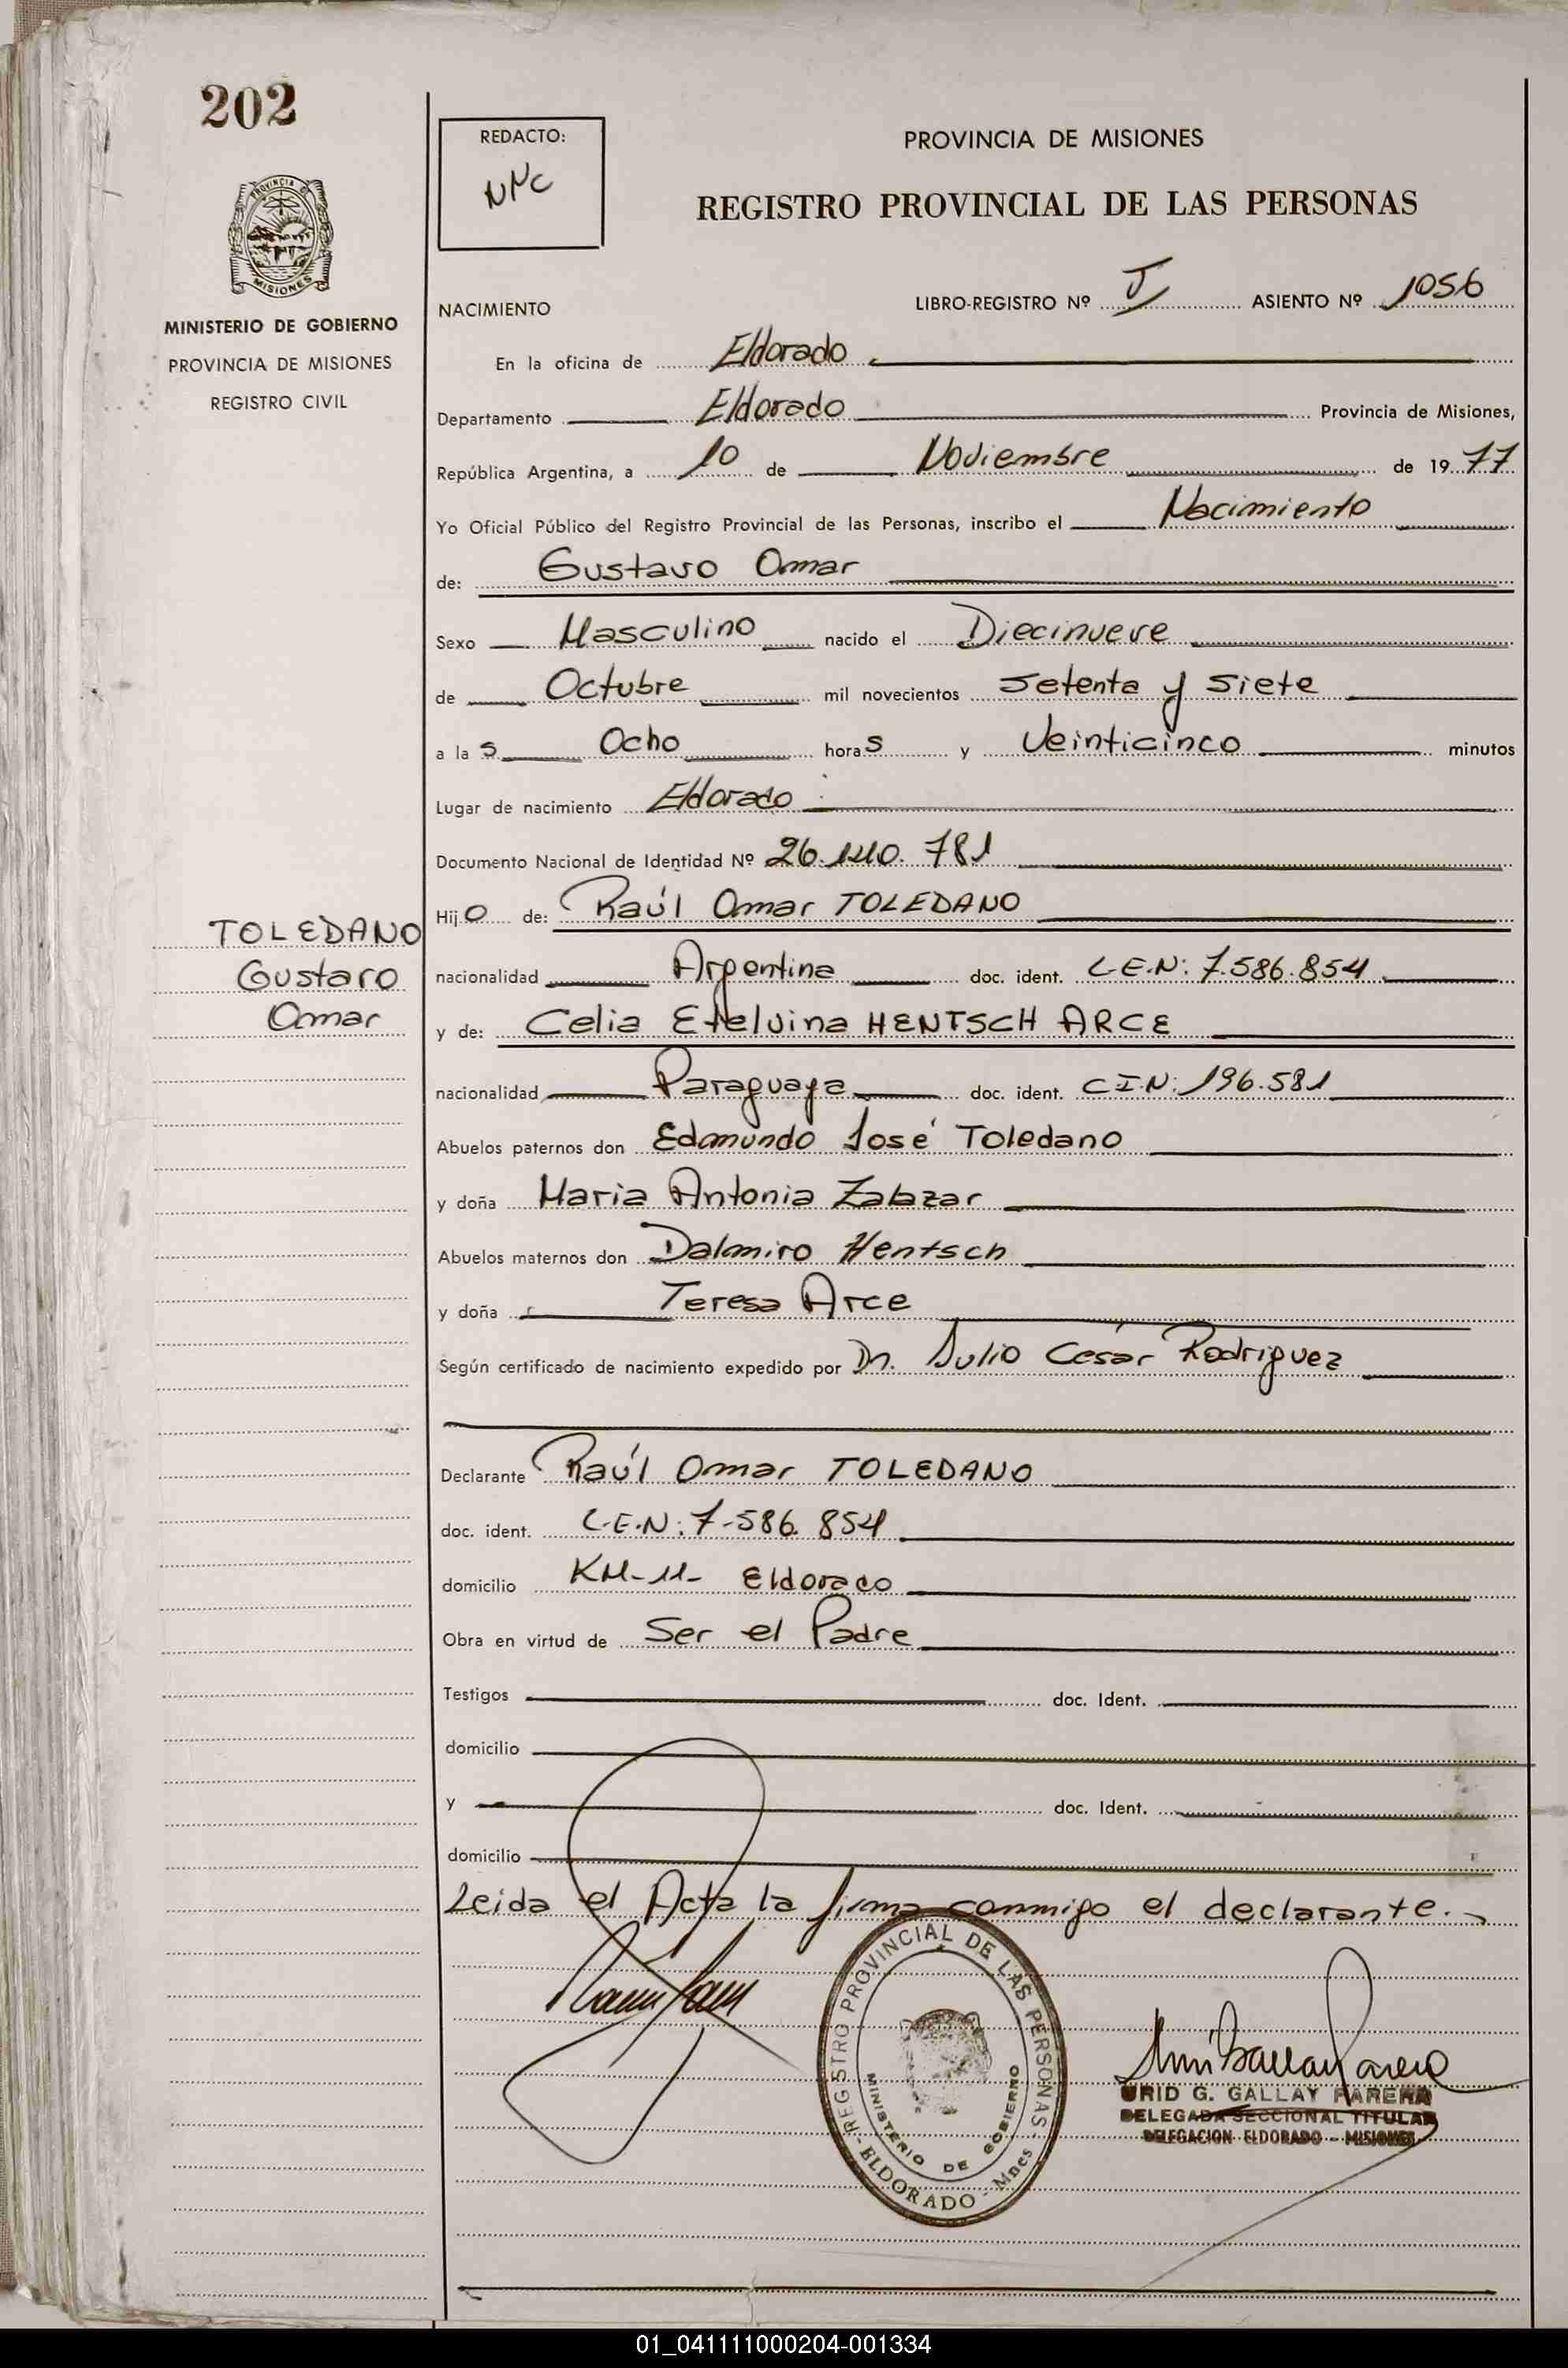 202
REDACTO:
NMC
PROVINCIA DE MISIONES
REGISTRO PROVINCIAL DE LAS PERSONAS
PROVINCIA DE
MISIONES
MINISTERIO DE GOBIERNO
PROVINCIA DE MISIONES
REGISTRO CIVIL
NACIMIENTO
LIBRO-REGISTRO Nº J ASIENTO Nº 1056
En la oficina de Eldorado
Departamento Eldorado Provincia de Misiones,
República Argentina, a 10 de Noviembre de 19 77
Yo Oficial Público del Registro Provincial de las Personas, inscribo el Nacimiento
de: Gustavo Omar
Sexo Masculino nacido el Diecinueve
de Octubre mil novecientos setenta y siete
a las Ocho horas y Veinticinco minutos
Lugar de nacimiento Eldorado
Documento Nacional de Identidad Nº 26.140.781
Hijo de: Raúl Omar TOLEDANO
TOLEDANO
Gustavo
Omar
nacionalidad Argentina doc. ident. L.E.N: 7.586.854
y de: Celia Etelvina HENTSCH ARCE
nacionalidad Paraguaya doc. ident. C.I.N: 196.581
Abuelos paternos don Edmundo José Toledano
y doña Maria Antonia Zalazar
Abuelos maternos don Dalmiro Hentsch
y doña Teresa Arce
Según certificado de nacimiento expedido por Dr. Julio César Rodriguez
Declarante Raúl Omar TOLEDANO
doc. ident. L.E.N: 7-586.854
domicilio KM-11- Eldorado
Obra en virtud de Ser el Padre
Testigos doc. Ident.
domicilio
y doc. Ident.
domicilio
Leida el Acta la firma conmigo el declarante.
REGISTRO PROVINCIAL DE LAS PERSONAS
MINISTERIO DE GOBIERNO
ELDORADO - Mnes
URID G. GALLAY PARERA
DELEGADA SECCIONAL TITULAR
DELEGACION ELDORADO - MISIONES
01_041111000204-001334